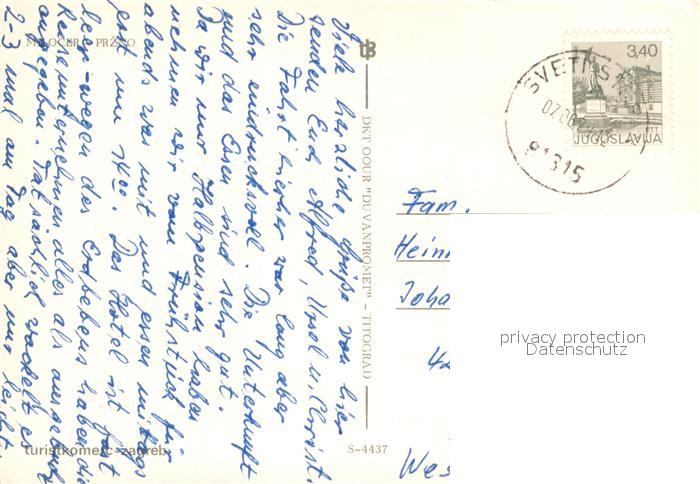 MILOČER - PRŽNO
Viele herzliche Grüße von hier
senden Euch Alfred, Ursel u. Christ.
Die Fahrt hierher war lang aber
sehr eindrucksvoll. Die Unterkunft
und das Essen sind sehr gut.
Da wir nur Halbpension haben
nehmen wir vom Frühstück für
abends was mit und essen mittags
erst um 14⁰⁰. Das Hotel ist fast
leer wegen des Erdbebens haben die
Reiseunternehmen alles als ausgebucht
ausgegeben. Tatsächlich wackelt es
2-3 mal am Tag aber nur leicht.
turistkomerc-zagreb
S-4437
DKT OOUR "DUVANPROMET" - TITOGRAD
3,40
PTT
JUGOSLAVIJA
SVETI S
81315
Fam.
Hein
Joha
Wes
privacy protection
Datenschutz